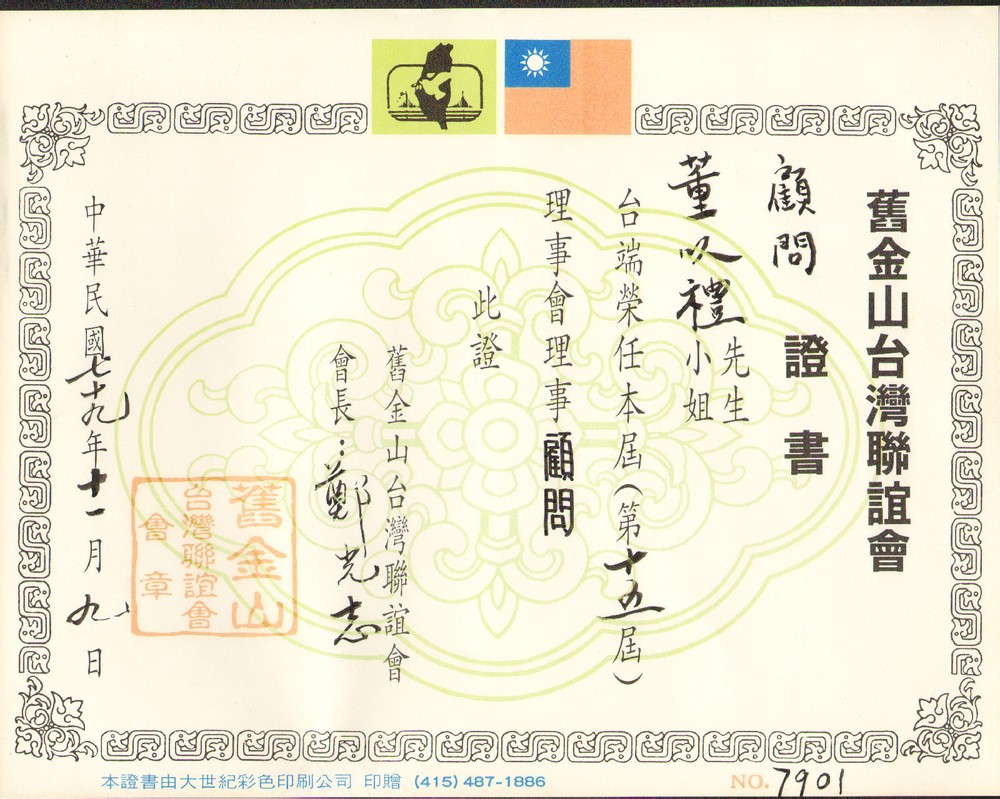 舊金山台灣聯誼會
顧問證書
董以禮先生
小姐
台端榮任本屆(第十五屆)
理事會理事顧問
此證
舊金山台灣聯誼會
會長:鄭光志
中華民國七十九年十一月九日
舊金山
台灣聯誼會
會章
本證書由大世紀彩色印刷公司 印贈 (415) 487-1886
NO. 7901